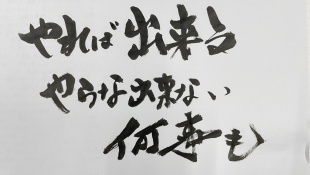 やれば出来る
やらな出来ない
何事も